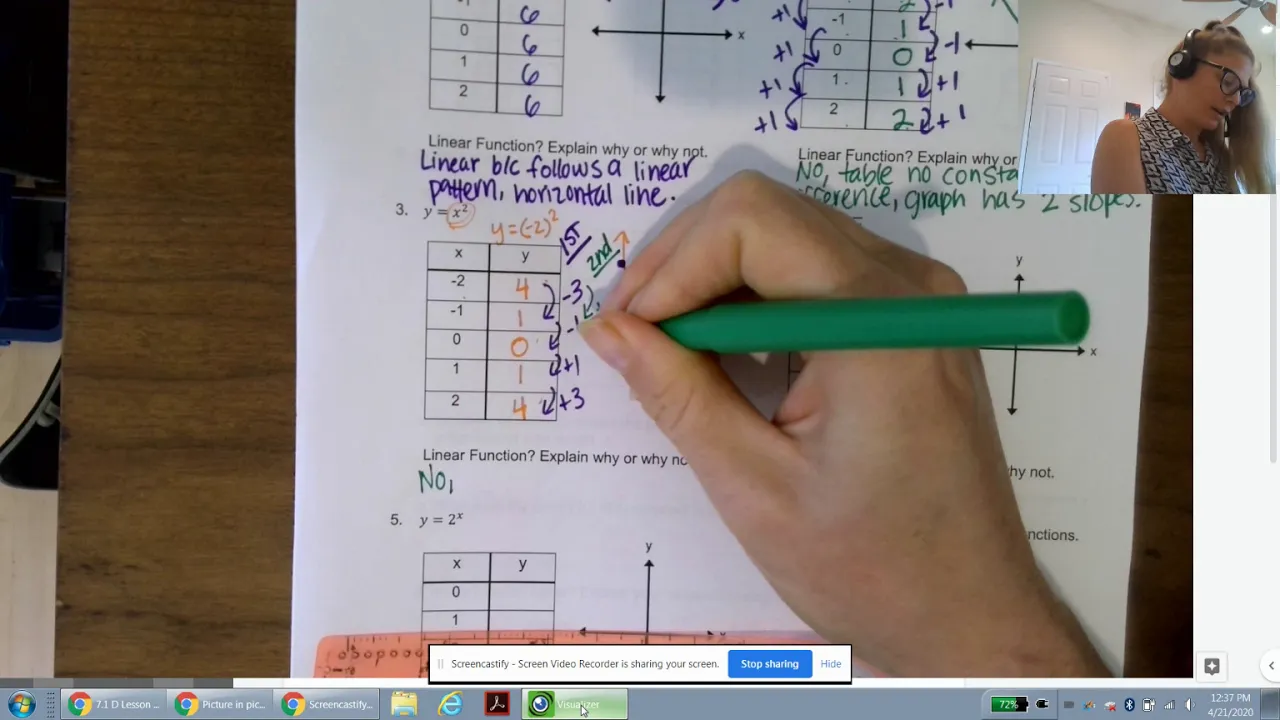 -1 6
0 6
1 6
2 6
x
2 -1
+1 -1 1
+1 0 0 -1
+1 1 1 +1
+1 2 2 +1
Linear Function? Explain why or why not.
Linear b/c follows a linear
pattern, horizontal line.
Linear Function? Explain why or
No, table no consta
fference, graph has 2 slopes.
3. y = x²
y=(-2)²
1st
2nd
x y
-2 4 -3
-1 1 -1
0 0
1 1 +1
2 4 +3
y
x
Linear Function? Explain why or why no
hy not.
No,
nctions.
5. y = 2ˣ
x y
0
1
y
Screencastify - Screen Video Recorder is sharing your screen.
Stop sharing
Hide
7.1 D Lesson ...
Picture in pic...
Screencastify...
Visualizer
72%
12:37 PM
4/21/2020